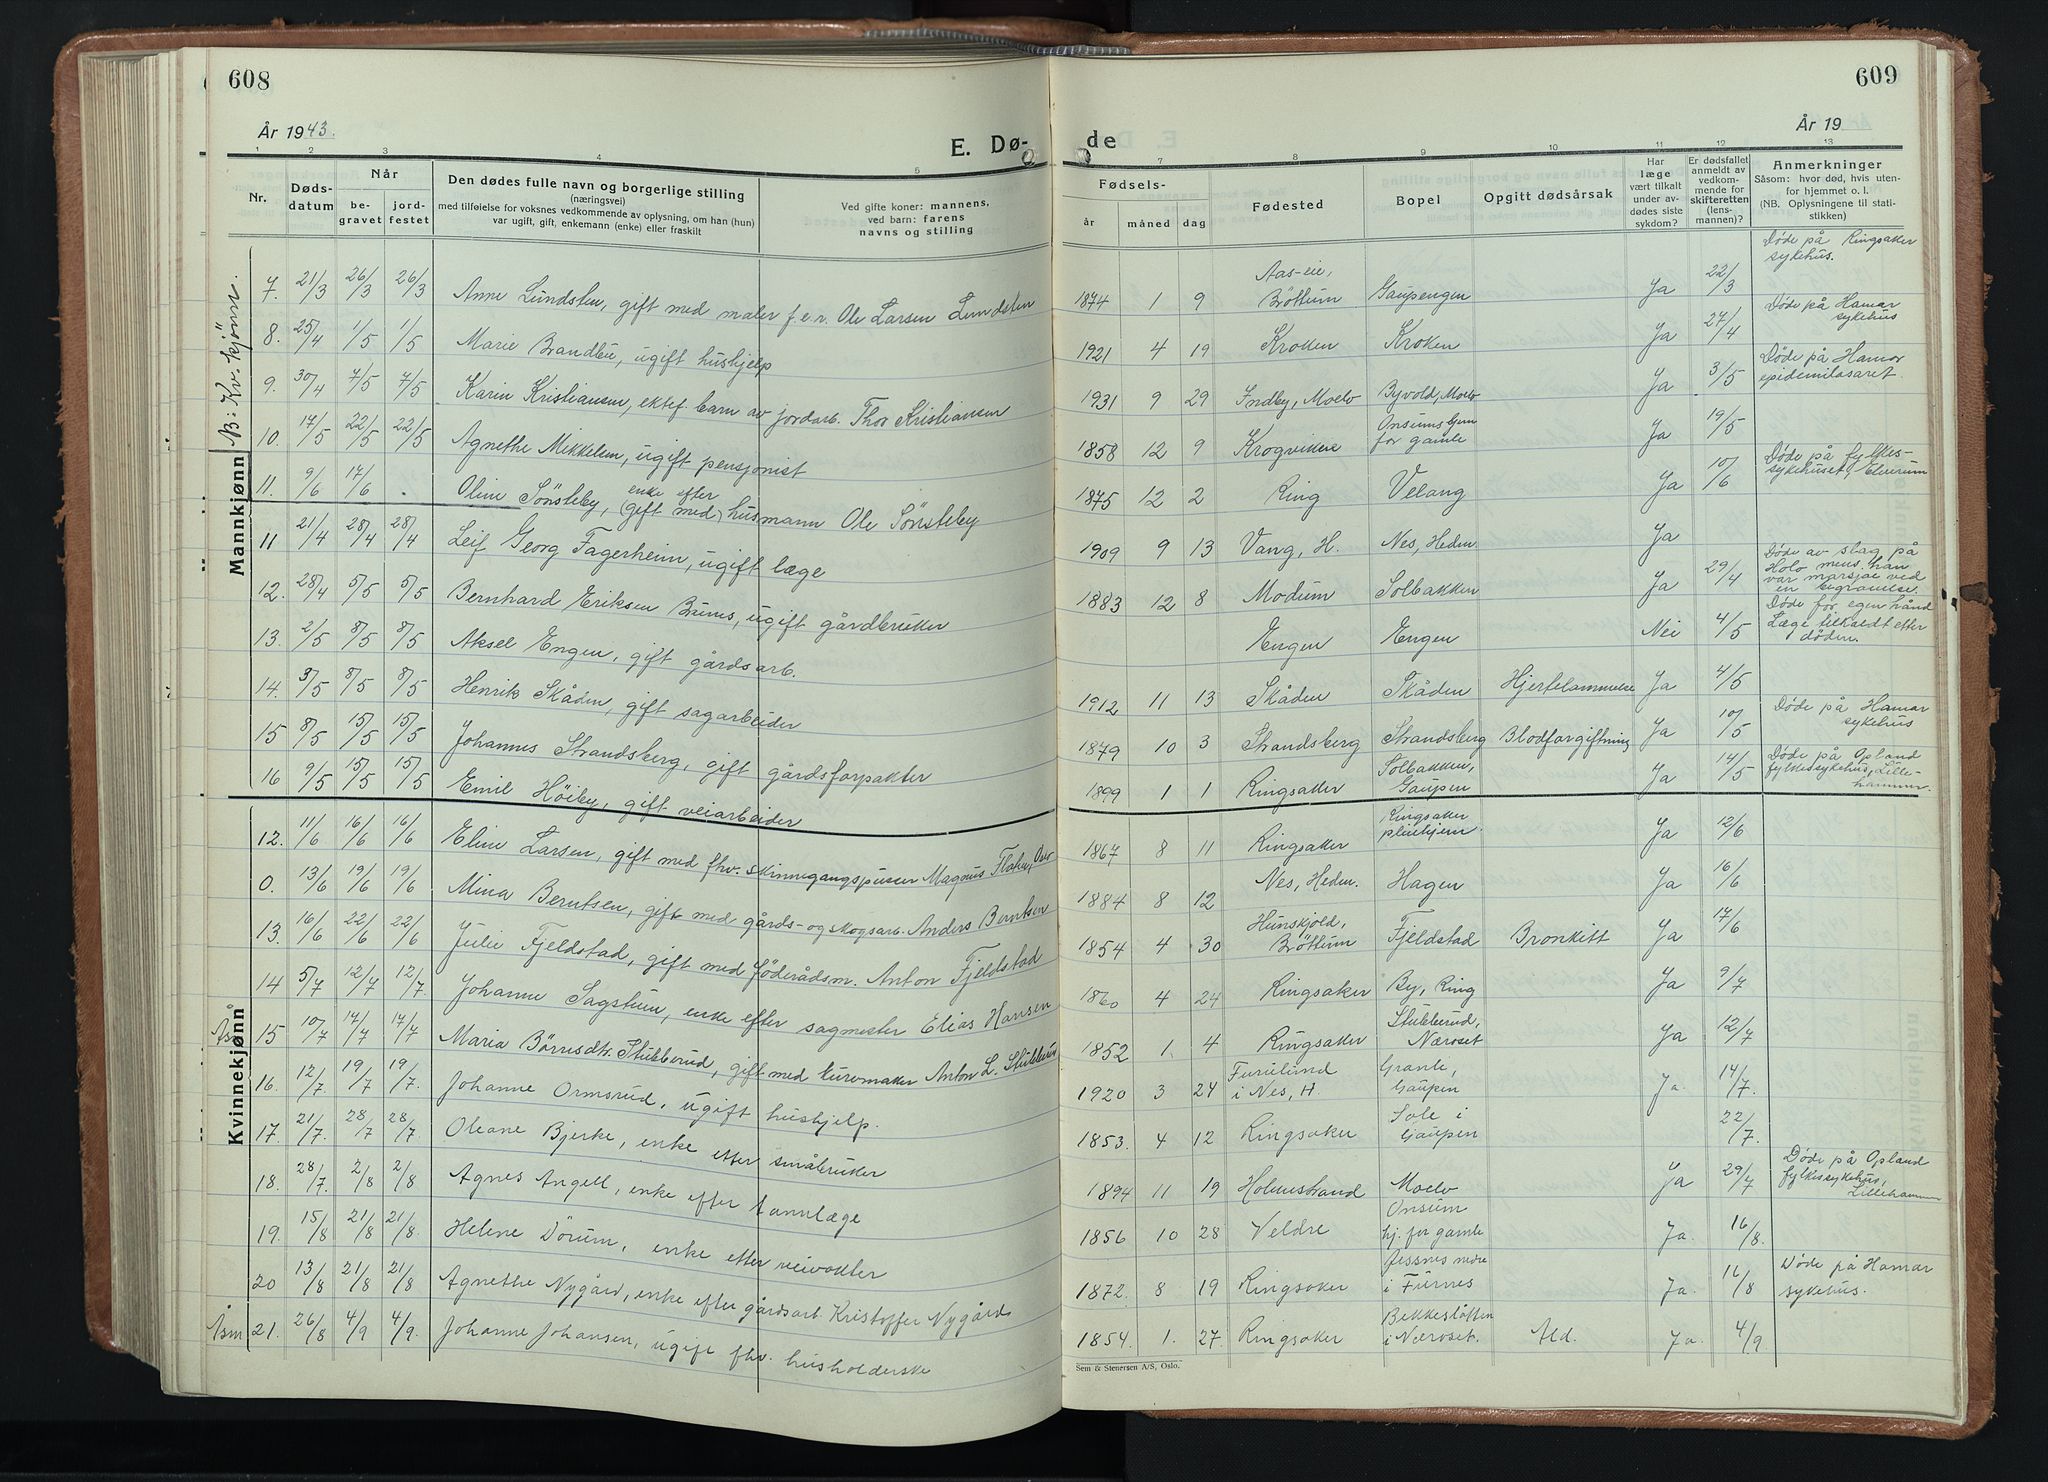 608
År 1943.
E. Dø-
1 2 3 4 5
Nr. Døds-datum Når be-gravet jord-festet Den dødes fulle navn og borgerlige stilling
(næringsvei)
med tilføielse for voksnes vedkommende av oplysning, om han (hun)
var ugift, gift, enkemann (enke) eller fraskilt
Ved gifte koner: mannens,
ved barn: farens
navns og stilling
B: Kv.kjønn.
7. 21/3 26/3 26/3 Anne Lundsten, gift med maler f.e.v. Ole Larsen Lundsten
8. 25/4 1/5 1/5 Marie Brandbu, ugift hushjelp
9. 30/4 7/5 7/5 Karin Kristiansen, ektef. barn av jordarb. Thor Kristiansen
10. 17/5 22/5 22/5 Agnethe Mikkelsen, ugift pensjonist
11. 9/6 17/6 . Oline Sønsteby, enke efter (gift med) husmann Ole Sønsteby
Mankjønn
11 21/4 28/4 28/4 Leif Georg Fagerheim, ugift læge
12. 28/4 5/5 5/5 Bernhard Eriksen Burns, ugift gårdbruker
13. 2/5 8/5 8/5 Aksel Engen, gift gårdsarb.
14. 3/5 8/5 8/5 Henrik Skåden, gift sagarbeider
15 8/5 15/5 15/5 Johannes Strandsberg, gift gårdsforpakter
16 9/5 15/5 15/5 Emil Høiby, gift veiarbeider
Kvinnekjønn
12. 11/6 16/6 16/6 Eline Larsen, gift med fhv. skinnegangspusser Magnus Oser
0. 13/6 19/6 19/6 Mina Berntsen, gift med gårds- og skogsarb. Anders Berntsen
13. 16/6 22/6 22/6 Julie Fjeldstad, gift med føderådsm. Anton Fjeldstad
14 5/7 12/7 12/7. Johanne Sagstuen, enke efter sagmester Elias Hansen
15 10/7 17/7 17/7 Maria Børresdtr. Stubberud, gift med turemaker Anton L. Stubberud
16. 12/7. 19/7 19/7. Johanne Ormsrud, ugift hushjelp.
17. 21/7. 28/7 28/7. Oleane Bjerke, enke etter småbruker
18. 28/7. 2/8 2/8 Agnes Angell, enke efter tannlæge
19. 15/8 21/8 21/8. Helene Dørum, enke etter veivokter
20 13/8 21/8 21/8 Agnethe Nygård, enke efter gårdsarb. Kristoffer Nygård
Åsm 21. 26/8 4/9 4/9. Johanne Johansen, ugift fhv. husholderske
609
År 19
de
7 8 9 10 11 12 13
Fødsels-
år måned dag Fødested Bopel Opgitt dødsårsak
Har
læge
vært tilkalt
under av-
dødes siste
sykdom?
Er dødsfallet
anmeldt av
vedkom-
mende for
skifteretten
(lens-
mannen)?
Anmerkninger
Såsom: hvor død, hvis uten-
for hjemmet o. l.
(NB. Oplysningene til stati-
stikken)
1874 1 9 Aas-eie, Brøttum Gaupengen Ja 22/3 Døde på Ringsaker sykehus.
1921 4 19 Kroken Kroken Ja 27/4 Døde på Hamar sykehus
1931 9 29 Indby, Moelv Byvold, Moelv Ja 3/5 Døde på Hamar epidemilasaret.
1858 12 9 Krogviken Onsumshjem for gamle Ja 19/5
1875 12 2 Ring Velang Ja 10/6 Døde på fylkes-sykehuset, Elverum
1909 9 13 Vang, H. Nes, Hedm. Ja
1883 12 8 Modum Solbakken Ja 29/4 Døde av slag på Holo mens han var marsjal ved en begravelse.
Engen Engen Nei 4/5 Døde for egen hånd Læge tilkaldt efter døden.
1912 11 13 Skåden Skåden Hjertelammelse Ja 4/5
1879 10 3 Strandsberg Strandsberg Blodforgiftning Ja 10/5 Døde på Hamar sykehus
1899 1 1 Ringsaker Solbakken, Gaupen Ja 14/5 Døde på Opland fylkessykehus, Lille-hammer.
1867 8 11 Ringsaker Ringsaker pleiehjem. Ja 12/6
1884 8 12 Nes, Hedm. Hagen Ja 16/6
1854 4 30 Hunskjold, Brøttum Fjeldstad Bronkitt Ja 17/6
1860 4 24 Ringsaker By, Ring Ja 9/7
1852 1. 4 Ringsaker Stubberud, Næroset Ja 12/7
1920 3 24 Furulund i Nes, H. Granle, Gaupen Ja. 14/7.
1853. 4 12 Ringsaker Sole i Gaupen 22/7.
1894 11 19 Holmestrand Moelv Ja 29/7 Døde på Opland fylkessykehus, Lillehammer
1856 10 28 Veldre Onsum hj. for gamle Ja. 16/8.
1872. 8 19 Ringsaker Jessnes nedre i Furnes Ja. 16/8 Døde på Hamar sykehus.
1854. 1. 27 Ringsaker Bekkesløtten i Næroset. Ald. Ja. 4/9.
Sem & Stenersen A/S, Oslo.